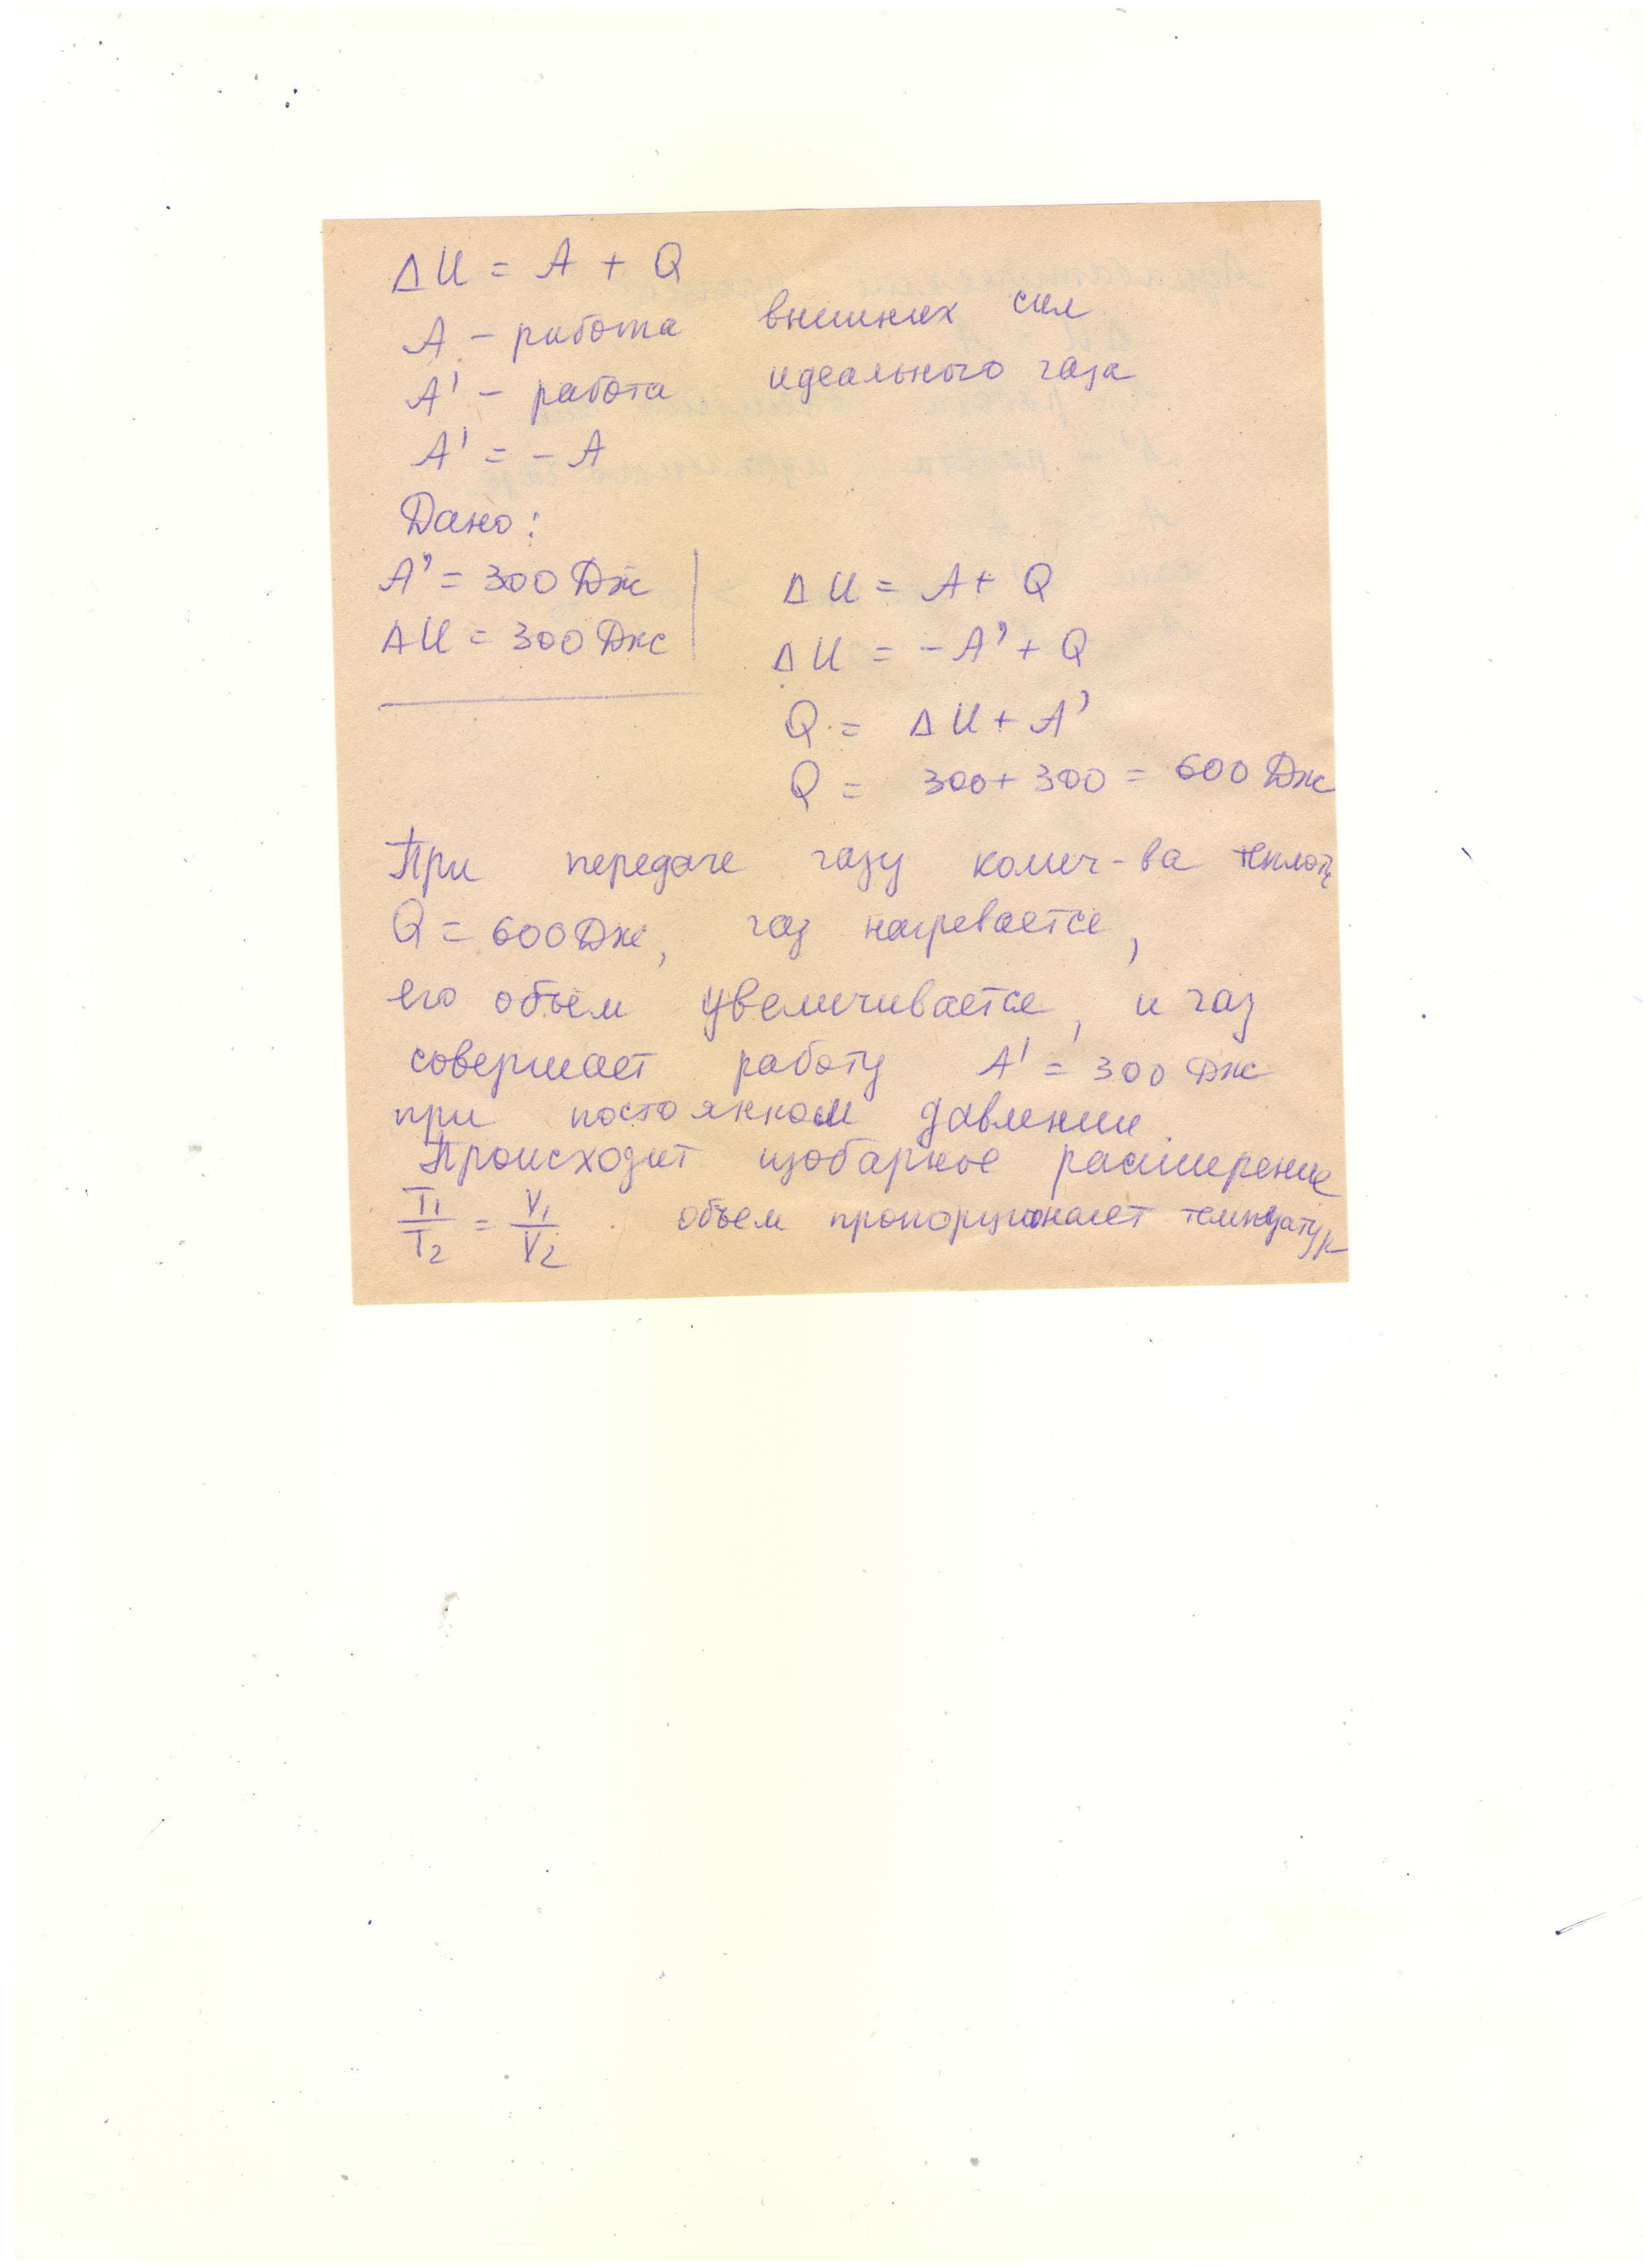 ΔU = A + Q
A – работа внешних сил
A' – работа идеального газа
A' = – A
Дано:
A' = 300 Дж
ΔU = 300 Дж
ΔU = A + Q
ΔU = – A' + Q
Q = ΔU + A'
Q = 300 + 300 = 600 Дж
При передаче газу колич-ва теплоты
Q = 600 Дж, газ нагревается,
его объём увеличивается, и газ
совершает работу A' = 300 Дж
при постоянном давлении.
Происходит изобарное расширение
T₁/T₂ = V₁/V₂ объем пропорционалет